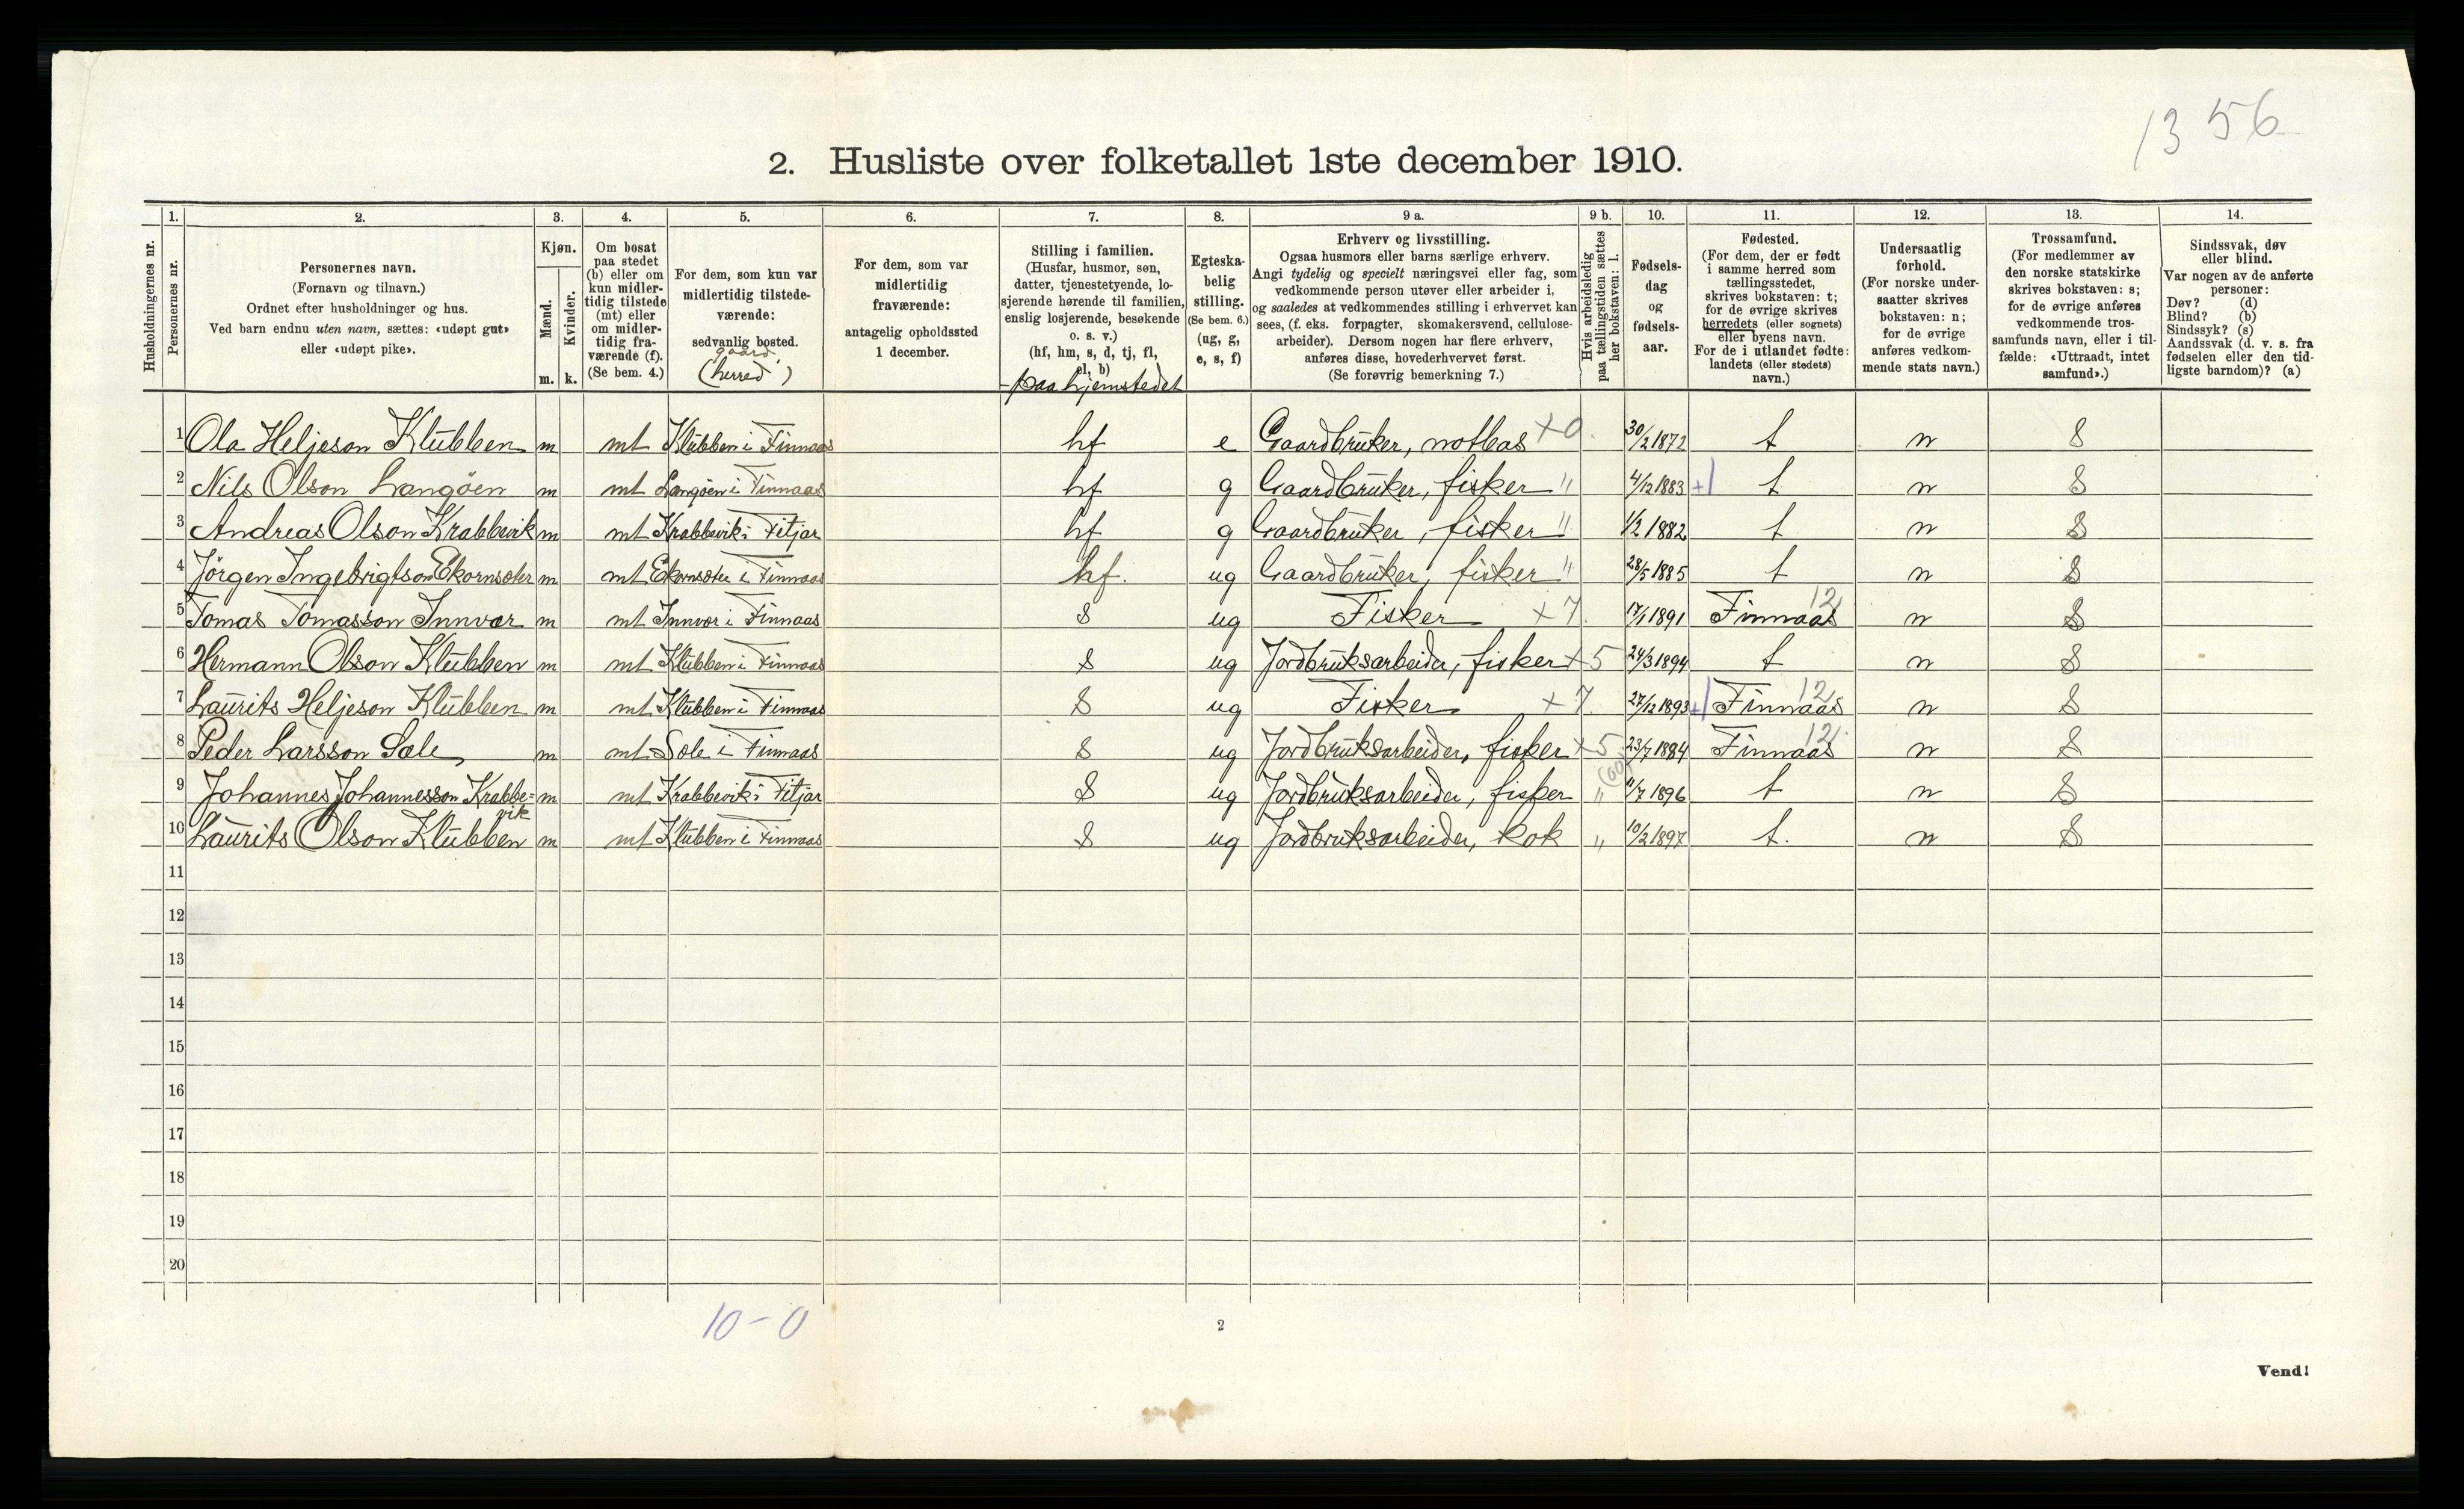 1356
2. Husliste over folketallet 1ste december 1910.
Husholdningernes nr.
1. Personernes nr.
2. Personernes navn. (Fornavn og tilnavn.) Ordnet efter husholdninger og hus. Ved barn endnu uten navn, sættes: «udøpt gut» eller «udøpt pike».
3. Kjøn. Mænd. m. Kvinder. k.
4. Om bosat paa stedet (b) eller om kun midler-tidig tilstede (mt) eller om midler-tidig fra-værende (f). (Se bem. 4.)
5. For dem, som kun var midlertidig tilstede-værende: sedvanlig bosted. gaard, (herred)
6. For dem, som var midlertidig fraværende: antagelig opholdssted 1 december.
7. Stilling i familien. (Husfar, husmor, søn, datter, tjenestetyende, lo-sjerende hørende til familien, enslig losjerende, besøkende o. s. v.) (hf, hm, s, d, tj, fl, el, b) - paa hjemstedet
8. Egteska-belig stilling. (Se bem. 6.) (ug, g, e, s, f)
9 a. Erhverv og livsstilling. Ogsaa husmors eller barns særlige erhverv. Angi tydelig og specielt næringsvei eller fag, som vedkommende person utøver eller arbeider i, og saaledes at vedkommendes stilling i erhvervet kan sees, (f. eks. forpagter, skomakersvend, cellulose-arbeider). Dersom nogen har flere erhverv, anføres disse, hovederhvervet først. (Se forøvrig bemerkning 7.)
9 b. Hvis arbeidsledig paa tællingstiden sættes her bokstaven: l.
10. Fødsels-dag og fødsels-aar.
11. Fødested. (For dem, der er født i samme herred som tællingsstedet, skrives bokstaven: t; for de øvrige skrives herredets (eller sognets) eller byens navn. For de i utlandet fødte: landets (eller stedets) navn.)
12. Undersaatlig forhold. (For norske under-saatter skrives bokstaven: n; for de øvrige anføres vedkom-mende stats navn.)
13. Trossamfund. (For medlemmer av den norske statskirke skrives bokstaven: s; for de øvrige anføres vedkommende tros-samfunds navn, eller i til-fælde: «Uttraadt, intet samfund».)
14. Sindssvak, døv eller blind. Var nogen av de anførte personer: Døv? (d) Blind? (b) Sindssyk? (s) Aandssvak (d. v. s. fra fødselen eller den tid-ligste barndom)? (a)
1 Ola Heljeson Klubben m mt Klubben i Finnaas hf e Gaardbruker, notbas +0. 30/2 1872 t n S
2 Nils Olson Langöen m mt Langöen i Finnaas hf g Gaardbruker, fisker " 4/12 1883 +1 t n S
3 Andreas Olson Krabbevik m mt Krabbevik i Fitjar hf g Gaardbruker, fisker " 1/2 1882 t n S
4 Jörgen Ingebrigtson Ekornsæter m mt Ekornsæter i Finnaas hf. ug Gaardbruker, fisker " 28/5 1885 t n S
5 Tomas Tomasson Innvær m mt Innvær i Finnaas S ug Fisker +7. 17/1 1891 Finnaas 12 n S
6 Hermann Olson Klubben m mt Klubben i Finnaas S ug Jordbruksarbeider, fisker +5 24/3 1894 t n S
7 Laurits Heljeson Klubben m mt Klubben i Finnaas S ug Fisker +7. 27/12 1893 +1 Finnaas 12 n S
8 Peder Larsson Sæle m mt Sæle i Finnaas S ug Jordbruksarbeider, fisker +5 23/7 1884 Finnaas 12 n S
9 Johannes Johannesson Krabbe=vik m mt Krabbevik i Fitjar S ug Jordbruksarbeider, fisker " 11/7 1896 t n S
10 Laurits Olson Klubben m mt Klubben i Finnaas S ug Jordbruksarbeider, kok " 10/2 1897 t. n S
11
12
13
14
15
16
17
18
19
20
10-0
2
Vend!